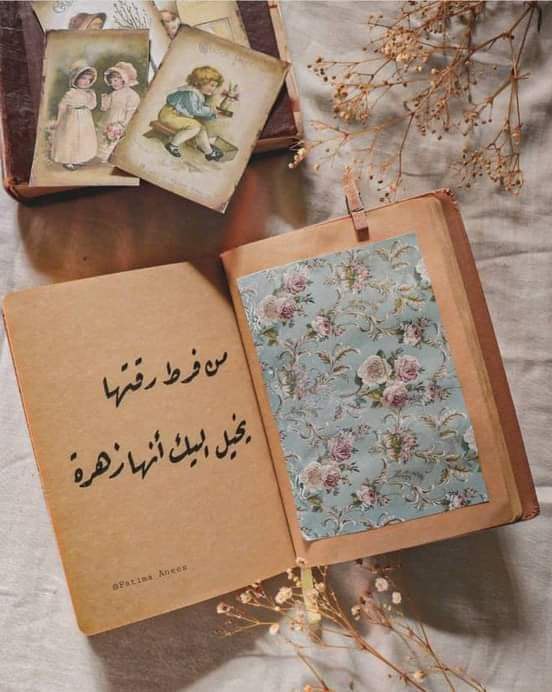 من فرط رقتها
يخيل اليك أنها زهرة
@Fatima Anees